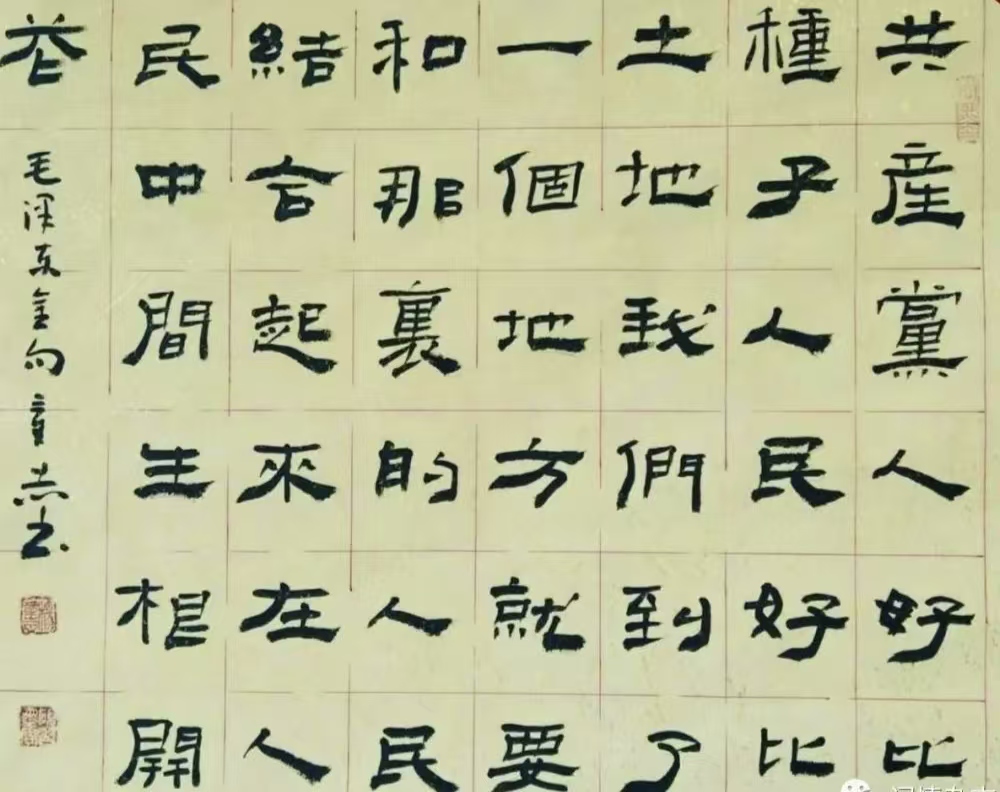 共産黨人好比
種子人民好比
土地我們到了
一個地方就要
和那裏的人民
結合起來在人
民中間生根開
花
毛澤东金句